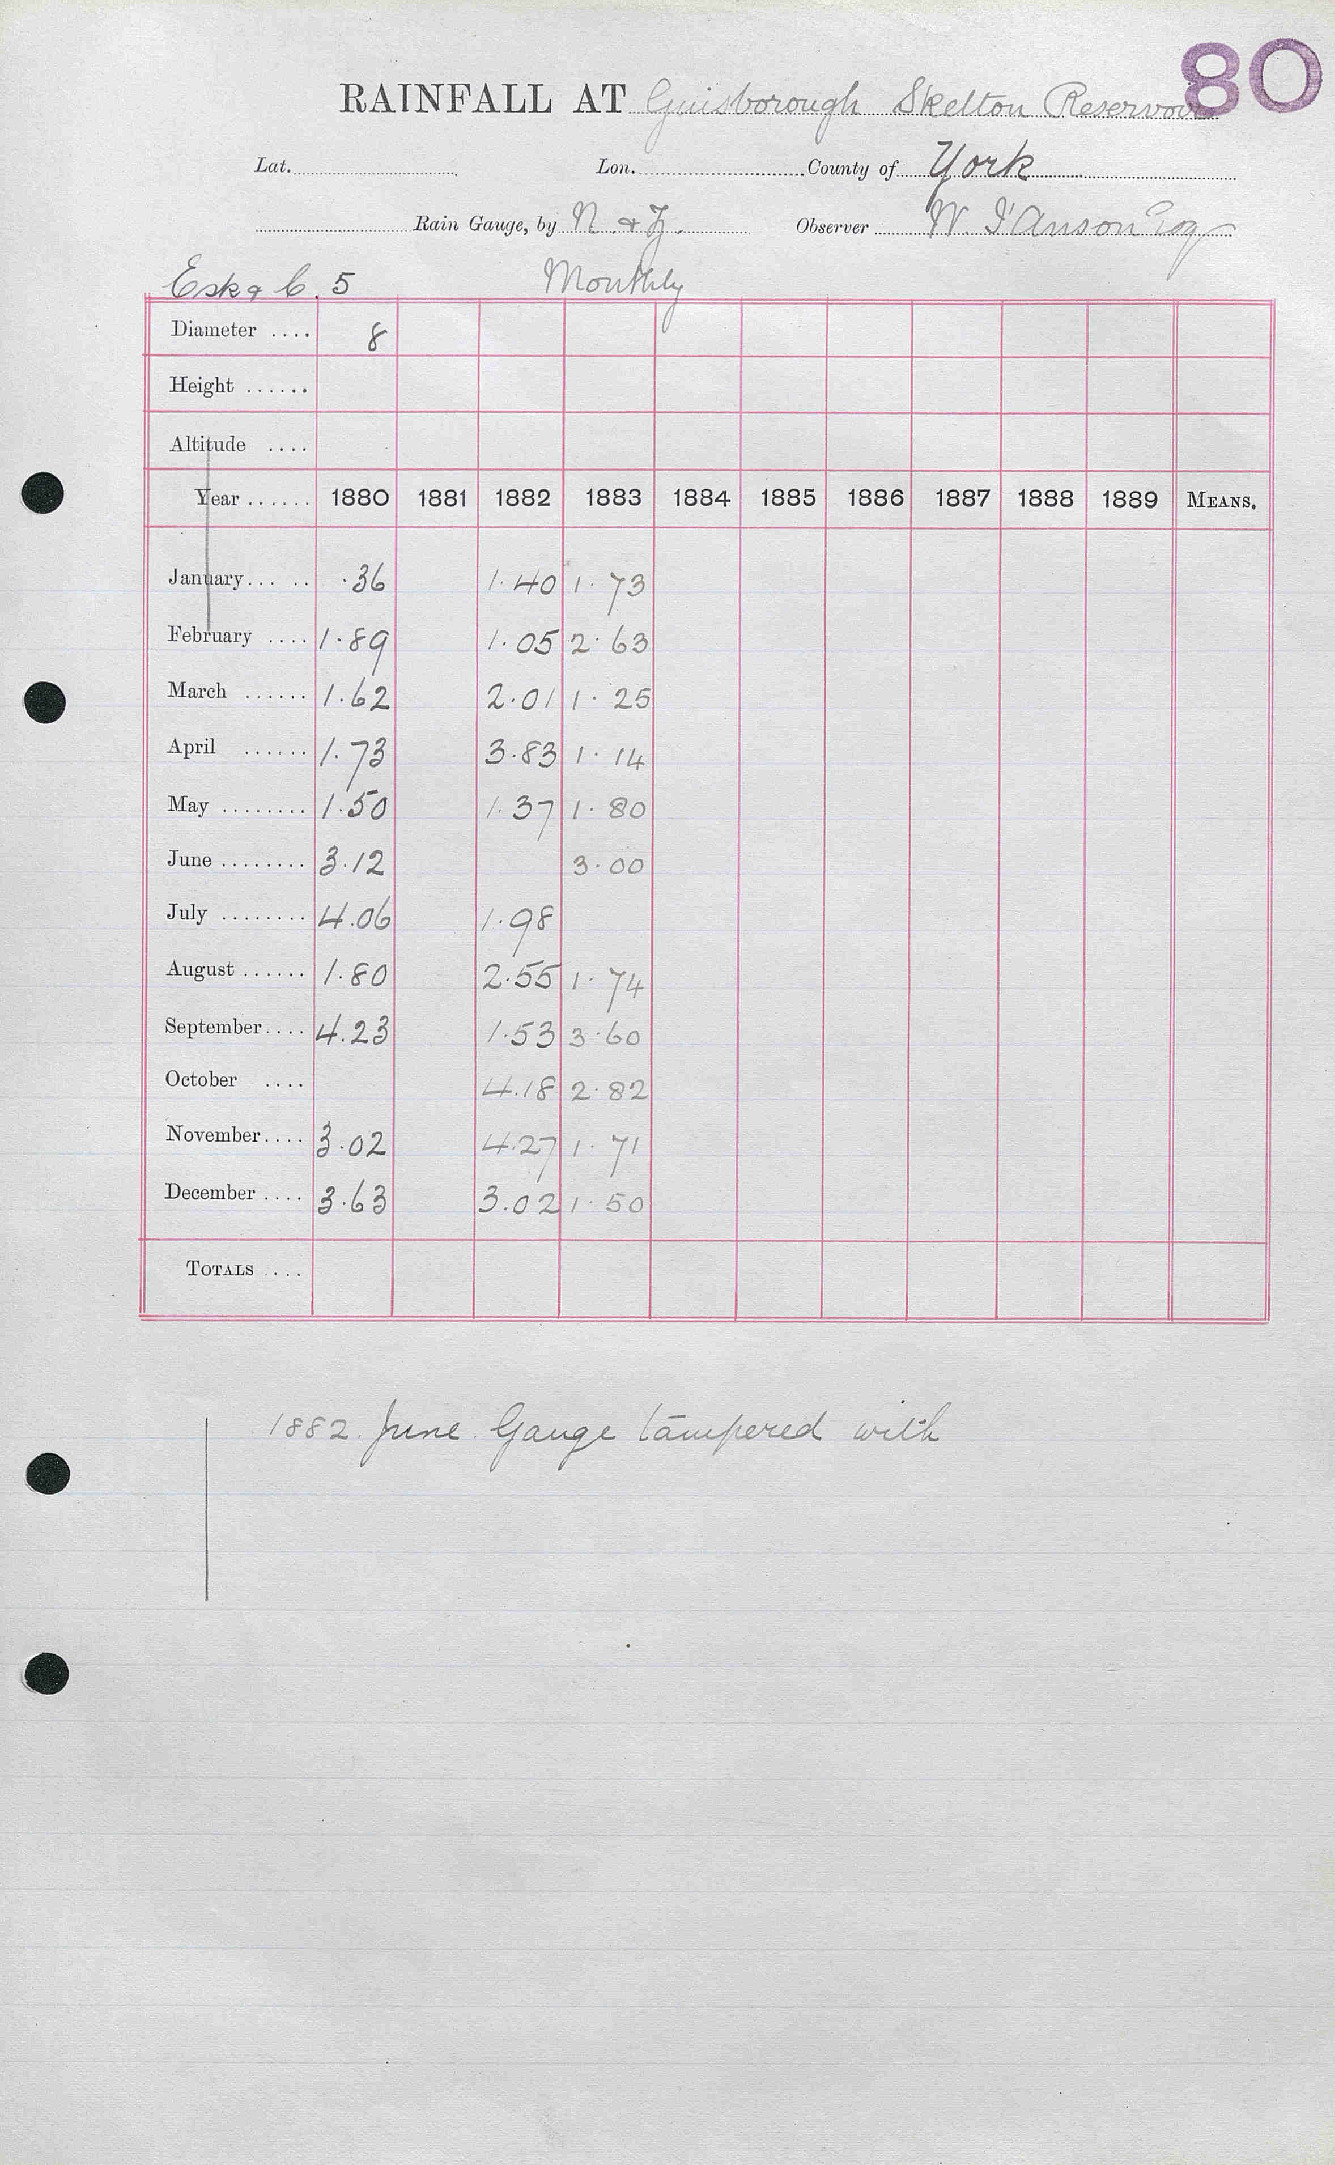 80
RAINFALL AT Guisborough Skelton Reservoir
Lat. Lon. County of York
Rain Gauge, by N & Z. Observer W. I'Anson Esq
Esk & C. 5 Monthly
Diameter .... 8
Height ......
Altitude ....
Year ...... 1880 1881 1882 1883 1884 1885 1886 1887 1888 1889 MEANS.
January... .. .36 1.40 1.73
February .... 1.89 1.05 2.63
March ...... 1.62 2.01 1.25
April ...... 1.73 3.83 1.14
May ........ 1.50 1.37 1.80
June ........ 3.12 3.00
July ........ 4.06 1.98
August ...... 1.80 2.55 1.74
September.... 4.23 1.53 3.60
October .... 4.18 2.82
November.... 3.02 4.27 1.71
December .... 3.63 3.02 1.50
TOTALS ...
1882 June Gauge tampered with